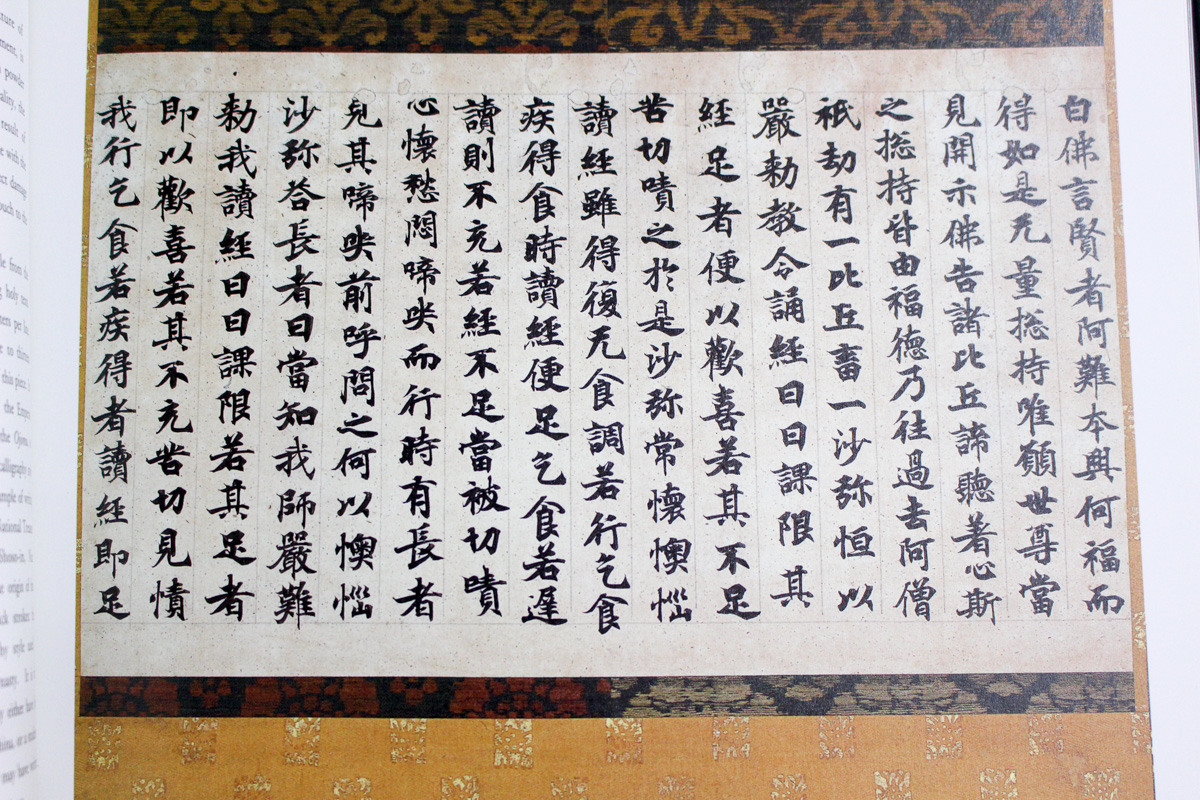 白佛言賢者阿難本與何福而
得如是无量揔持唯願世尊當
見開示佛告諸比丘諦聽著心斯
之揔持皆由福德乃往過去阿僧
祇劫有一比丘畜一沙弥恒以
嚴勑教令誦經日日課限其
經足者便以歡喜若其不足
苦切嘖之於是沙弥常懷懊惱
讀經雖得復无食調若行乞食
疾得食時讀經便足乞食若遲
讀則不充若經不足當被切嘖
心懷愁悶啼哭而行時有長者
見其啼哭前呼問之何以懊惱
沙弥荅長者曰當知我師嚴難
勑我讀經日日課限若其足者
即以歡喜若其不充苦切見憤
我行乞食若疾得者讀經即足
of
is
powder
the
result of
with the
damage
to the
from the
holy
per
to
this piece
the
the
calligraphy
of
National
origin of
strokes
style
It is
either
or a
may have